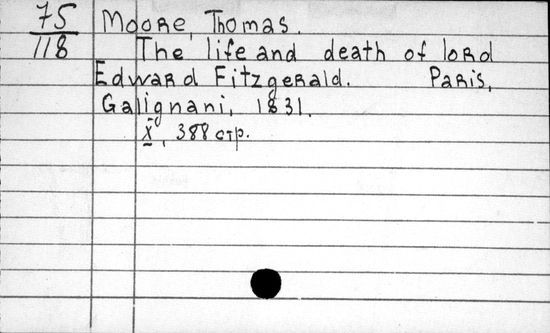 75 Moore, Thomas.
118 The life and death of lord
Edward Fitzgerald. Paris,
Galignani, 1831.
X, 388 стр.